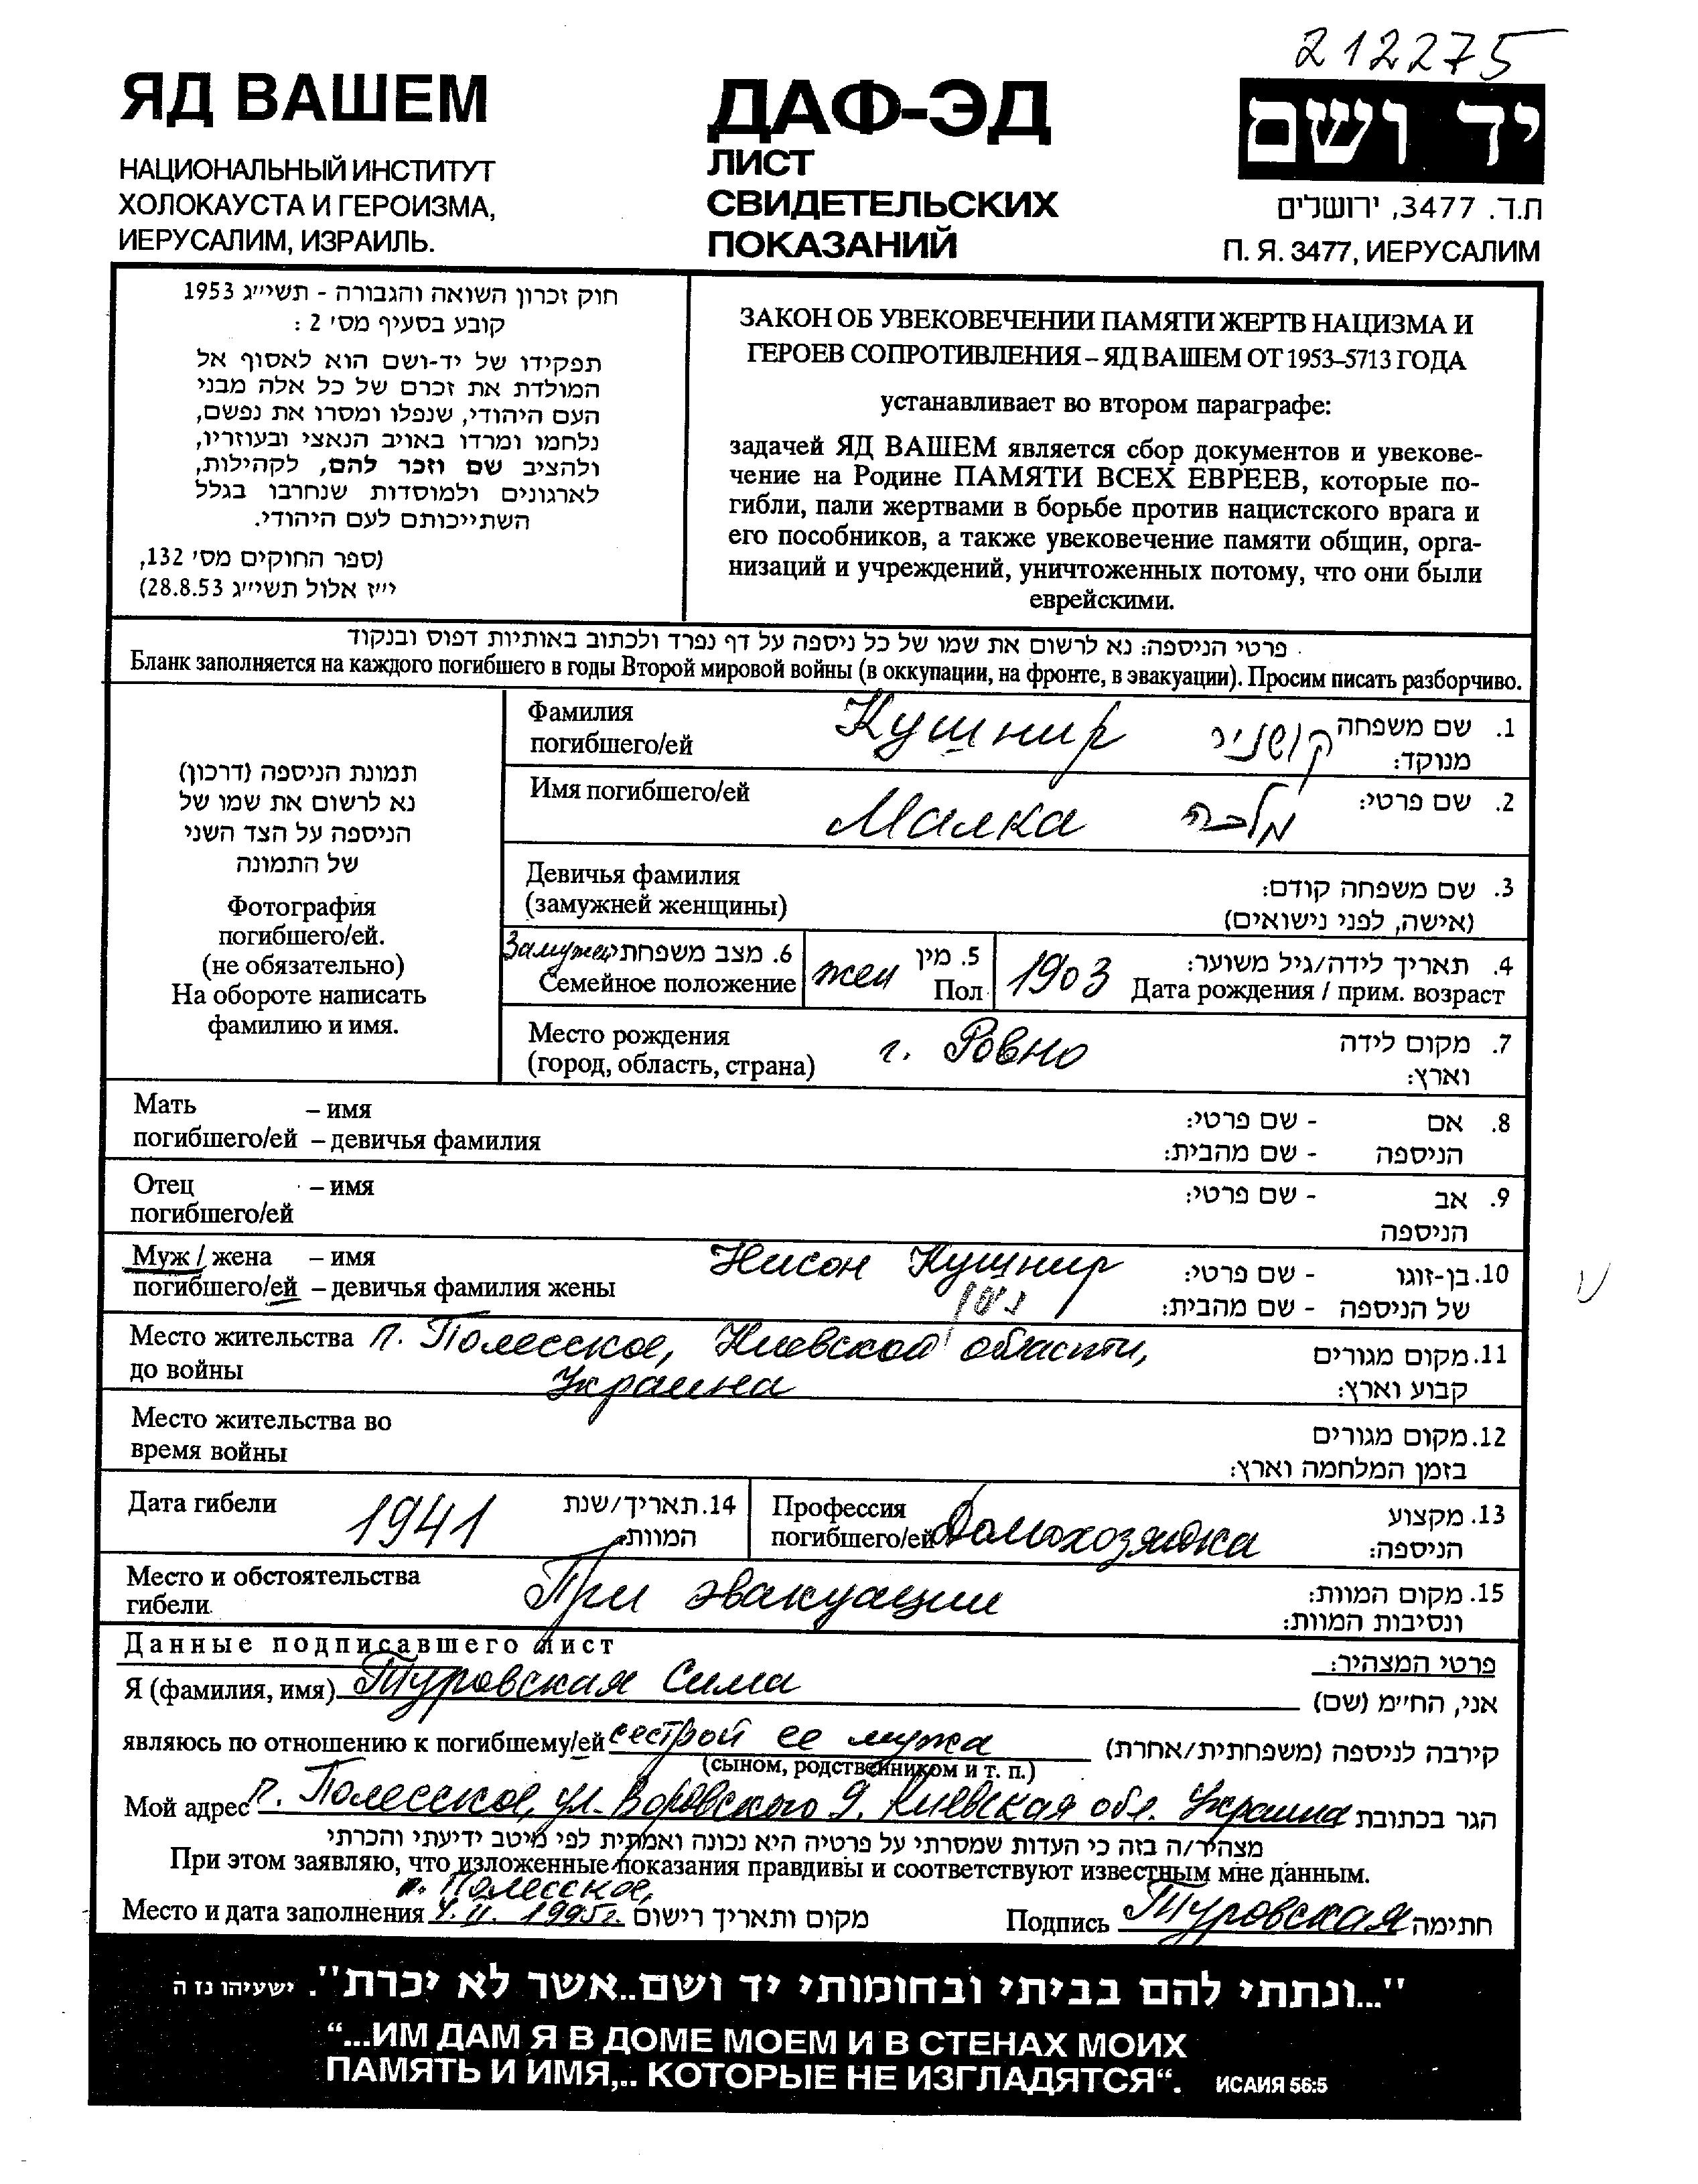 212275
ЯД ВАШЕМ
НАЦИОНАЛЬНЫЙ ИНСТИТУТ
ХОЛОКАУСТА И ГЕРОИЗМА,
ИЕРУСАЛИМ, ИЗРАИЛЬ.
ДАФ-ЭД
ЛИСТ
СВИДЕТЕЛЬСКИХ
ПОКАЗАНИЙ
יד ושם
ת.ד. 3477, ירושלים
П. Я. 3477, ИЕРУСАЛИМ
חוק זכרון השואה והגבורה - תשי״ג 1953
קובע בסעיף מס׳ 2 :
תפקידו של יד-ושם הוא לאסוף אל
המולדת את זכרם של כל אלה מבני
העם היהודי, שנפלו ומסרו את נפשם,
נלחמו ומרדו באויב הנאצי ובעוזריו,
ולהציב שם וזכר להם, לקהילות,
לארגונים ולמוסדות שנחרבו בגלל
השתייכותם לעם היהודי.
(ספר החוקים מס׳ 132,
י״ז אלול תשי״ג 28.8.53)
ЗАКОН ОБ УВЕКОВЕЧЕНИИ ПАМЯТИ ЖЕРТВ НАЦИЗМА И
ГЕРОЕВ СОПРОТИВЛЕНИЯ – ЯД ВАШЕМ ОТ 1953–5713 ГОДА
устанавливает во втором параграфе:
задачей ЯД ВАШЕМ является сбор документов и увекове-
чение на Родине ПАМЯТИ ВСЕХ ЕВРЕЕВ, которые по-
гибли, пали жертвами в борьбе против нацистского врага и
его пособников, а также увековечение памяти общин, орга-
низаций и учреждений, уничтоженных потому, что они были
еврейскими.
פרטי הניספה: נא לרשום את שמו של כל ניספה על דף נפרד ולכתוב באותיות דפוס ובנקוד
Бланк заполняется на каждого погибшего в годы Второй мировой войны (в оккупации, на фронте, в эвакуации). Просим писать разборчиво.
תמונת הניספה (דרכון)
נא לרשום את שמו של
הניספה על הצד השני
של התמונה
Фотография
погибшего/ей.
(не обязательно)
На обороте написать
фамилию и имя.
Фамилия Кушнир קושניר 1. שם משפחה
погибшего/ей מנוקד:
Имя погибшего/ей Малка מלכה 2. שם פרטי:
Девичья фамилия 3. שם משפחה קודם:
(замужней женщины) (אישה, לפני נישואים)
Замужем 6. מצב משפחתי жен 5. מין 1903 4. תאריך לידה/גיל משוער:
Семейное положение Пол Дата рождения / прим. возраст
Место рождения г. Ровно 7. מקום לידה
(город, область, страна) וארץ:
Мать – имя 8. אם - שם פרטי:
погибшего/ей – девичья фамилия הניספה - שם מהבית:
Отец – имя 9. אב - שם פרטי:
погибшего/ей הניספה
Муж / жена – имя Нисон Кушнир 10. בן-זוגו - שם פרטי:
погибшего/ей – девичья фамилия жены ניסן של הניספה - שם מהבית:
Место жительства п. Полесское, Киевской области, 11. מקום מגורים
до войны Украина קבוע וארץ:
Место жительства во 12. מקום מגורים
время войны בזמן המלחמה וארץ:
Дата гибели 1941 14. תאריך/שנת Профессия 13. מקצוע
המוות: погибшего/ей Домохозяйка הניספה:
Место и обстоятельства При эвакуации 15. מקום המוות:
гибели. ונסיבות המוות:
Данные подписавшего лист
פרטי המצהיר:
Я (фамилия, имя) Туровская Сима אני, הח״מ (שם)
являюсь по отношению к погибшему/ей сестрой ее мужа קירבה לניספה (משפחתית/אחרת)
(сыном, родственником и т. п.)
Мой адрес п. Полесское, ул. Воровского 9. Киевская обл. Украина הגר בכתובת
מצהיר/ה בזה כי העדות שמסרתי על פרטיה היא נכונה ואמתית לפי מיטב ידיעתי והכרתי
При этом заявляю, что изложенные показания правдивы и соответствуют известным мне данным.
п. Полесское,
Место и дата заполнения 4. II. 1995г. מקום ותאריך רישום Подпись Туровская חתימה
"...ונתתי להם בביתי ובחומותי יד ושם..אשר לא יכרת". ישעיהו נז ה
“...ИМ ДАМ Я В ДОМЕ МОЕМ И В СТЕНАХ МОИХ
ПАМЯТЬ И ИМЯ,.. КОТОРЫЕ НЕ ИЗГЛАДЯТСЯ“. ИСАИЯ 56:5